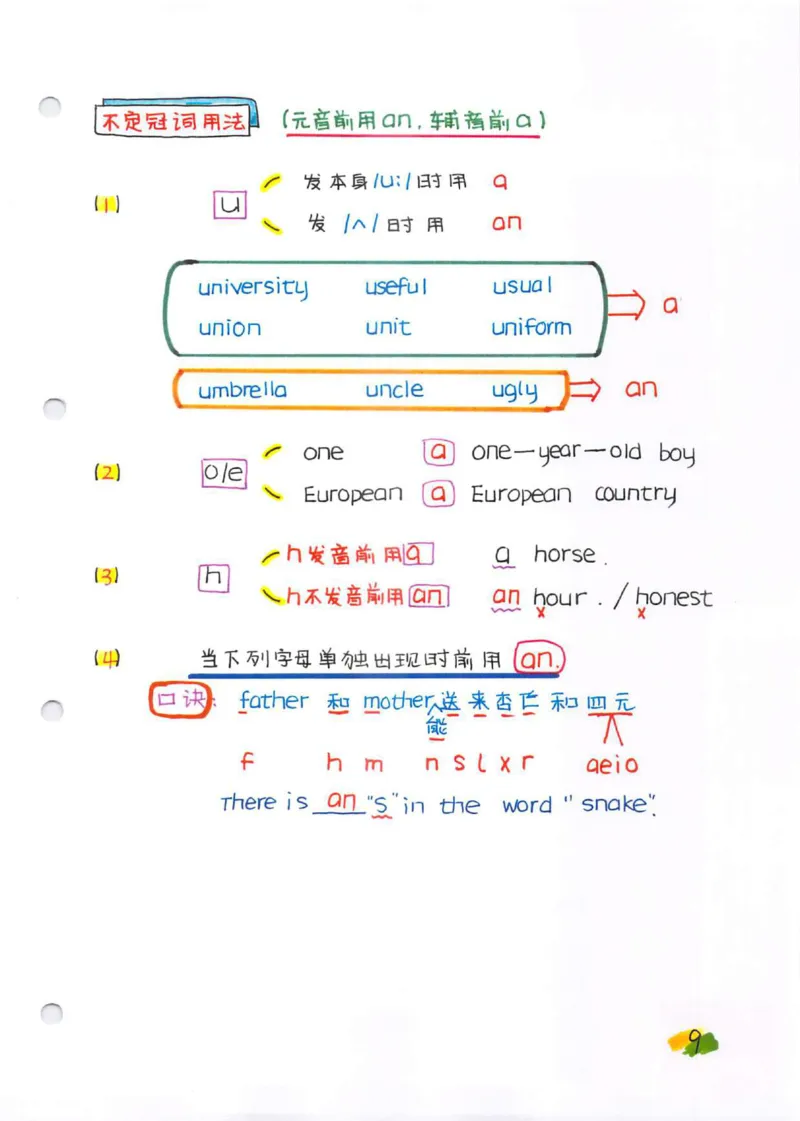 不定冠词用法 (元音前用an,辅音前a)
发本身/u:/时用 a
(1) u
发 /ʌ/时用 an
university useful usual
a
union unit uniform
umbrella uncle ugly an
one a one—year—old boy
(2) o/e
European a European country
h发音前用a a horse.
(3) h
h不发音前用an an hour. / honest
x x
(4) 当下列字母单独出现时前用 an.
口诀: father 和 mother送来杏仁和四元
能
f h m n s l x r aeio
There is an "s" in the word "snake".
9